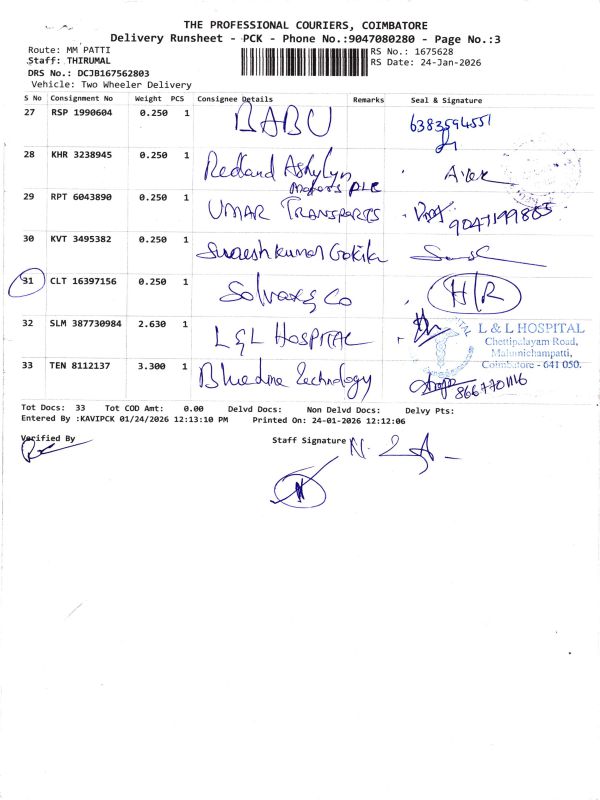 THE PROFESSIONAL COURIERS, COIMBATORE
Delivery Runsheet - PCK - Phone No.:9047080280 - Page No.:3
Route: MM PATTI
RS No.: 1675628
Staff: THIRUMAL
RS Date: 24-Jan-2026
DRS No.: DCJB167562803
Vehicle: Two Wheeler Delivery
S No Consignment No Weight PCS Consignee Details Remarks Seal & Signature
27 RSP 1990604 0.250 1 BABU 6383594551
28 KHR 3238945 0.250 1 Redland Ashylyn
Motors PLC
29 RPT 6043890 0.250 1 UMAR TRANSPORTS 9047199865
30 KVT 3495382 0.250 1 Sureshkumar Gokila
31 CLT 16397156 0.250 1 Solvax & Co H/R
32 SLM 387730984 2.630 1 L&L HOSPITAL
L & L HOSPITAL
Chettipalayam Road,
Malumichampatti,
Coimbatore - 641 050.
33 TEN 8112137 3.300 1 Bluedme Technology 8667701116
Tot Docs: 33 Tot COD Amt: 0.00 Delvd Docs: Non Delvd Docs: Delvy Pts:
Entered By :KAVIPCK 01/24/2026 12:13:10 PM Printed On: 24-01-2026 12:12:06
Verified By Staff Signature